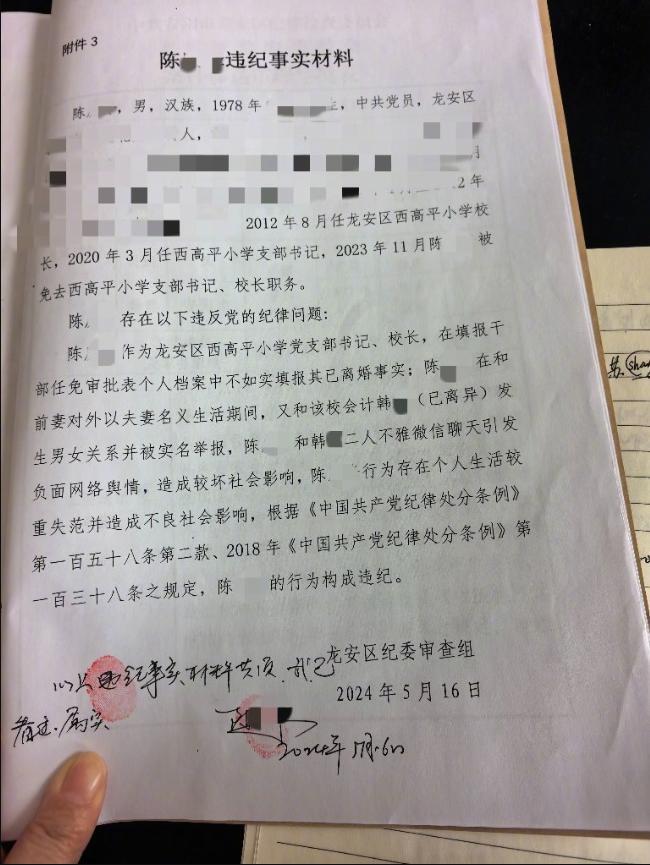 附件3
陈 违纪事实材料
陈 ，男，汉族，1978年 ，中共党员，龙安区
人，
月
2年
2012年8月任龙安区西高平小学校
长，2020年3月任西高平小学支部书记，2023年11月陈 被
免去西高平小学支部书记、校长职务。
陈 存在以下违反党的纪律问题：
陈 作为龙安区西高平小学党支部书记、校长，在填报干
部任免审批表个人档案中不如实填报其已离婚事实；陈 在和
前妻对外以夫妻名义生活期间，又和该校会计韩 （已离异）发
生男女关系并被实名举报，陈 和韩 二人不雅微信聊天引发
负面网络舆情，造成较坏社会影响，陈 行为存在个人生活较
重失范并造成不良社会影响，根据《中国共产党纪律处分条例》
第一百五十八条第二款、2018年《中国共产党纪律处分条例》第
一百三十八条之规定，陈 的行为构成违纪。
龙安区纪委审查组
2024年5月16日
以上违纪事实材料共 页，我已
看过，属实
2024年5月16日
苏